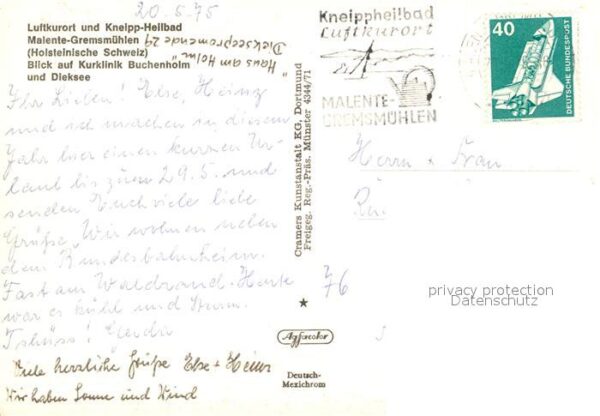 20.5.75
Luftkurort und Kneipp-Heilbad
Malente-Gremsmühlen
(Holsteinische Schweiz)
Blick auf Kurklinik Buchenholm
und Dieksee
"Haus am Holm"
Diekseepromenade 29
Ihr Lieben! Else, Heinz
und ich machen in diesem
Jahr hier einen kurzen Ur-
laub bis zum 29.5. und
senden Euch viele liebe
Grüße. Wir wohnen neben
dem Bundesbahnheim.
Fast am Waldrand. Heute
war es kühl und Sturm.
Tschüss! Gerda
Viele herzliche Grüße Else + Heinz
Wir haben Sonne und Wind
Cramers Kunstanstalt KG, Dortmund
Freigeg. Reg.-Präs. Münster 4344/71
Agfacolor
Deutsch-
Mexichrom
Kneippheilbad
Luftkurort
MALENTE-
GREMSMÜHLEN
40
DEUTSCHE BUNDESPOST
Herrn + Frau
76
privacy protection
Datenschutz